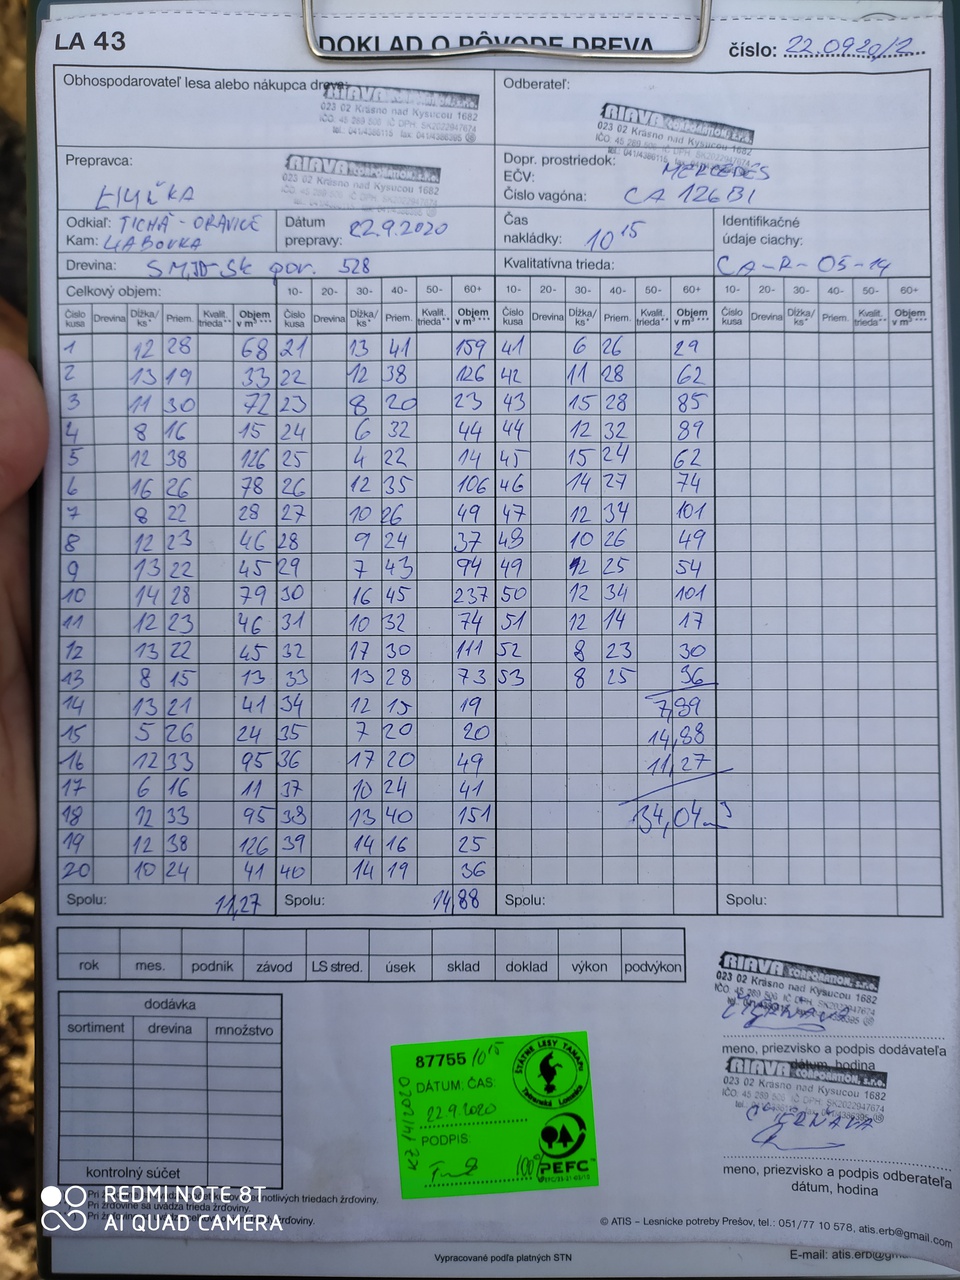 LA 43
DOKLAD O PÔVODE DREVA
číslo: 22.0920/2
Obhospodarovateľ lesa alebo nákupca dreva:
RIAVA CORPORATION, s.r.o.
023 02 Krásno nad Kysucou 1682
IČO: 45 289 506 IČ DPH: SK2022947674
tel.: 041/4386115 fax: 041/4386395
Odberateľ:
RIAVA CORPORATION, s.r.o.
023 02 Krásno nad Kysucou 1682
IČO: 45 289 506 IČ DPH: SK2022947674
Prepravca:
RIAVA CORPORATION, s.r.o.
023 02 Krásno nad Kysucou 1682
Dopr. prostriedok: MERCEDES
EČV:
Číslo vagóna: CA 126BI
Odkiaľ: TICHÁ - ORAVICE
Kam: HABOVKA
Dátum prepravy: 22.9.2020
Čas nakládky: 10 15
Identifikačné údaje ciachy:
CA-R-05-14
Drevina: SM, JD-Sk por. 528
Kvalitatívna trieda:
Celkový objem: 10- 20- 30- 40- 50- 60+ 10- 20- 30- 40- 50- 60+ 10- 20- 30- 40- 50- 60+
Číslo kusa Drevina Dĺžka/ks* Priem. Kvalit. trieda** Objem v m³*** Číslo kusa Drevina Dĺžka/ks* Priem. Kvalit. trieda** Objem v m³*** Číslo kusa Drevina Dĺžka/ks* Priem. Kvalit. trieda** Objem v m³*** Číslo kusa Drevina Dĺžka/ks* Priem. Kvalit. trieda** Objem v m³***
1 12 28 68 21 13 41 159 41 6 26 29
2 13 19 33 22 12 38 126 42 11 28 62
3 11 30 72 23 8 20 23 43 15 28 85
4 8 16 15 24 6 32 44 44 12 32 89
5 12 38 126 25 4 22 14 45 15 24 62
6 16 26 78 26 12 35 106 46 14 27 74
7 8 22 28 27 10 26 49 47 12 34 101
8 12 23 46 28 9 24 37 48 10 26 49
9 13 22 45 29 7 43 94 49 12 25 54
10 14 28 79 30 16 45 237 50 12 34 101
11 12 23 46 31 10 32 74 51 12 14 17
12 13 22 45 32 17 30 111 52 8 23 30
13 8 15 13 33 13 28 73 53 8 25 36
14 13 21 41 34 12 15 19 7,89
15 5 26 24 35 7 20 20 14,88
16 12 33 95 36 17 20 49 11,27
17 6 16 11 37 10 24 41
18 12 33 95 38 13 40 151 34,04 m3
19 12 38 126 39 14 16 25
20 10 24 41 40 14 19 36
Spolu: 11,27 Spolu: 14,88 Spolu: Spolu:
rok mes. podnik závod LS stred. úsek sklad doklad výkon podvýkon
RIAVA CORPORATION, s.r.o.
023 02 Krásno nad Kysucou 1682
IČO: 45 289 506 IČ DPH: SK2022947674
meno, priezvisko a podpis dodávateľa
dátum, hodina
RIAVA CORPORATION, s.r.o.
023 02 Krásno nad Kysucou 1682
IČO: 45 289 506 IČ DPH: SK2022947674
ČERNAVA
meno, priezvisko a podpis odberateľa
dátum, hodina
dodávka
sortiment drevina množstvo
kontrolný súčet
87755 10 15
DÁTUM: ČAS:
22.9.2020
PODPIS:
KZ 14/2020
100%
ŠTÁTNE LESY TANAPU
Tatranská Lomnica
PEFC
jednotlivých triedach žrďoviny.
Pri žrďovine sa uvádza trieda žrďoviny.
© ATIS – Lesnícke potreby Prešov, tel.: 051/77 10 578, atis.erb@gmail.com
Vypracované podľa platných STN
E-mail: atis.erb@gm
REDMI NOTE 8T
AI QUAD CAMERA